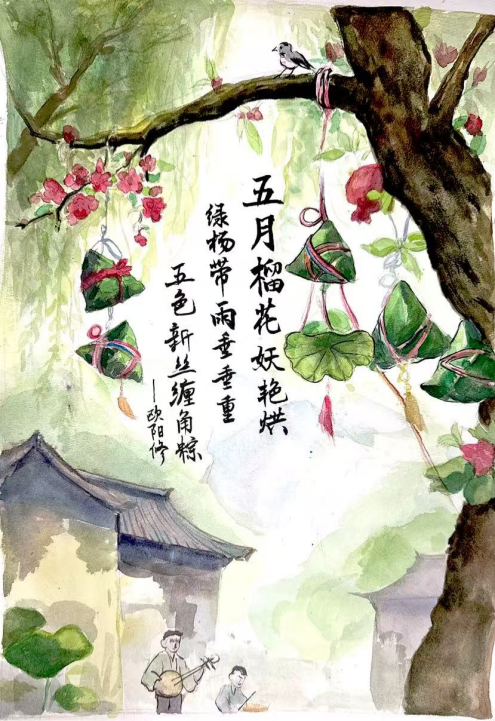 五月榴花妖艳烘
绿杨带雨垂垂重
五色新丝缠角粽
—欧阳修